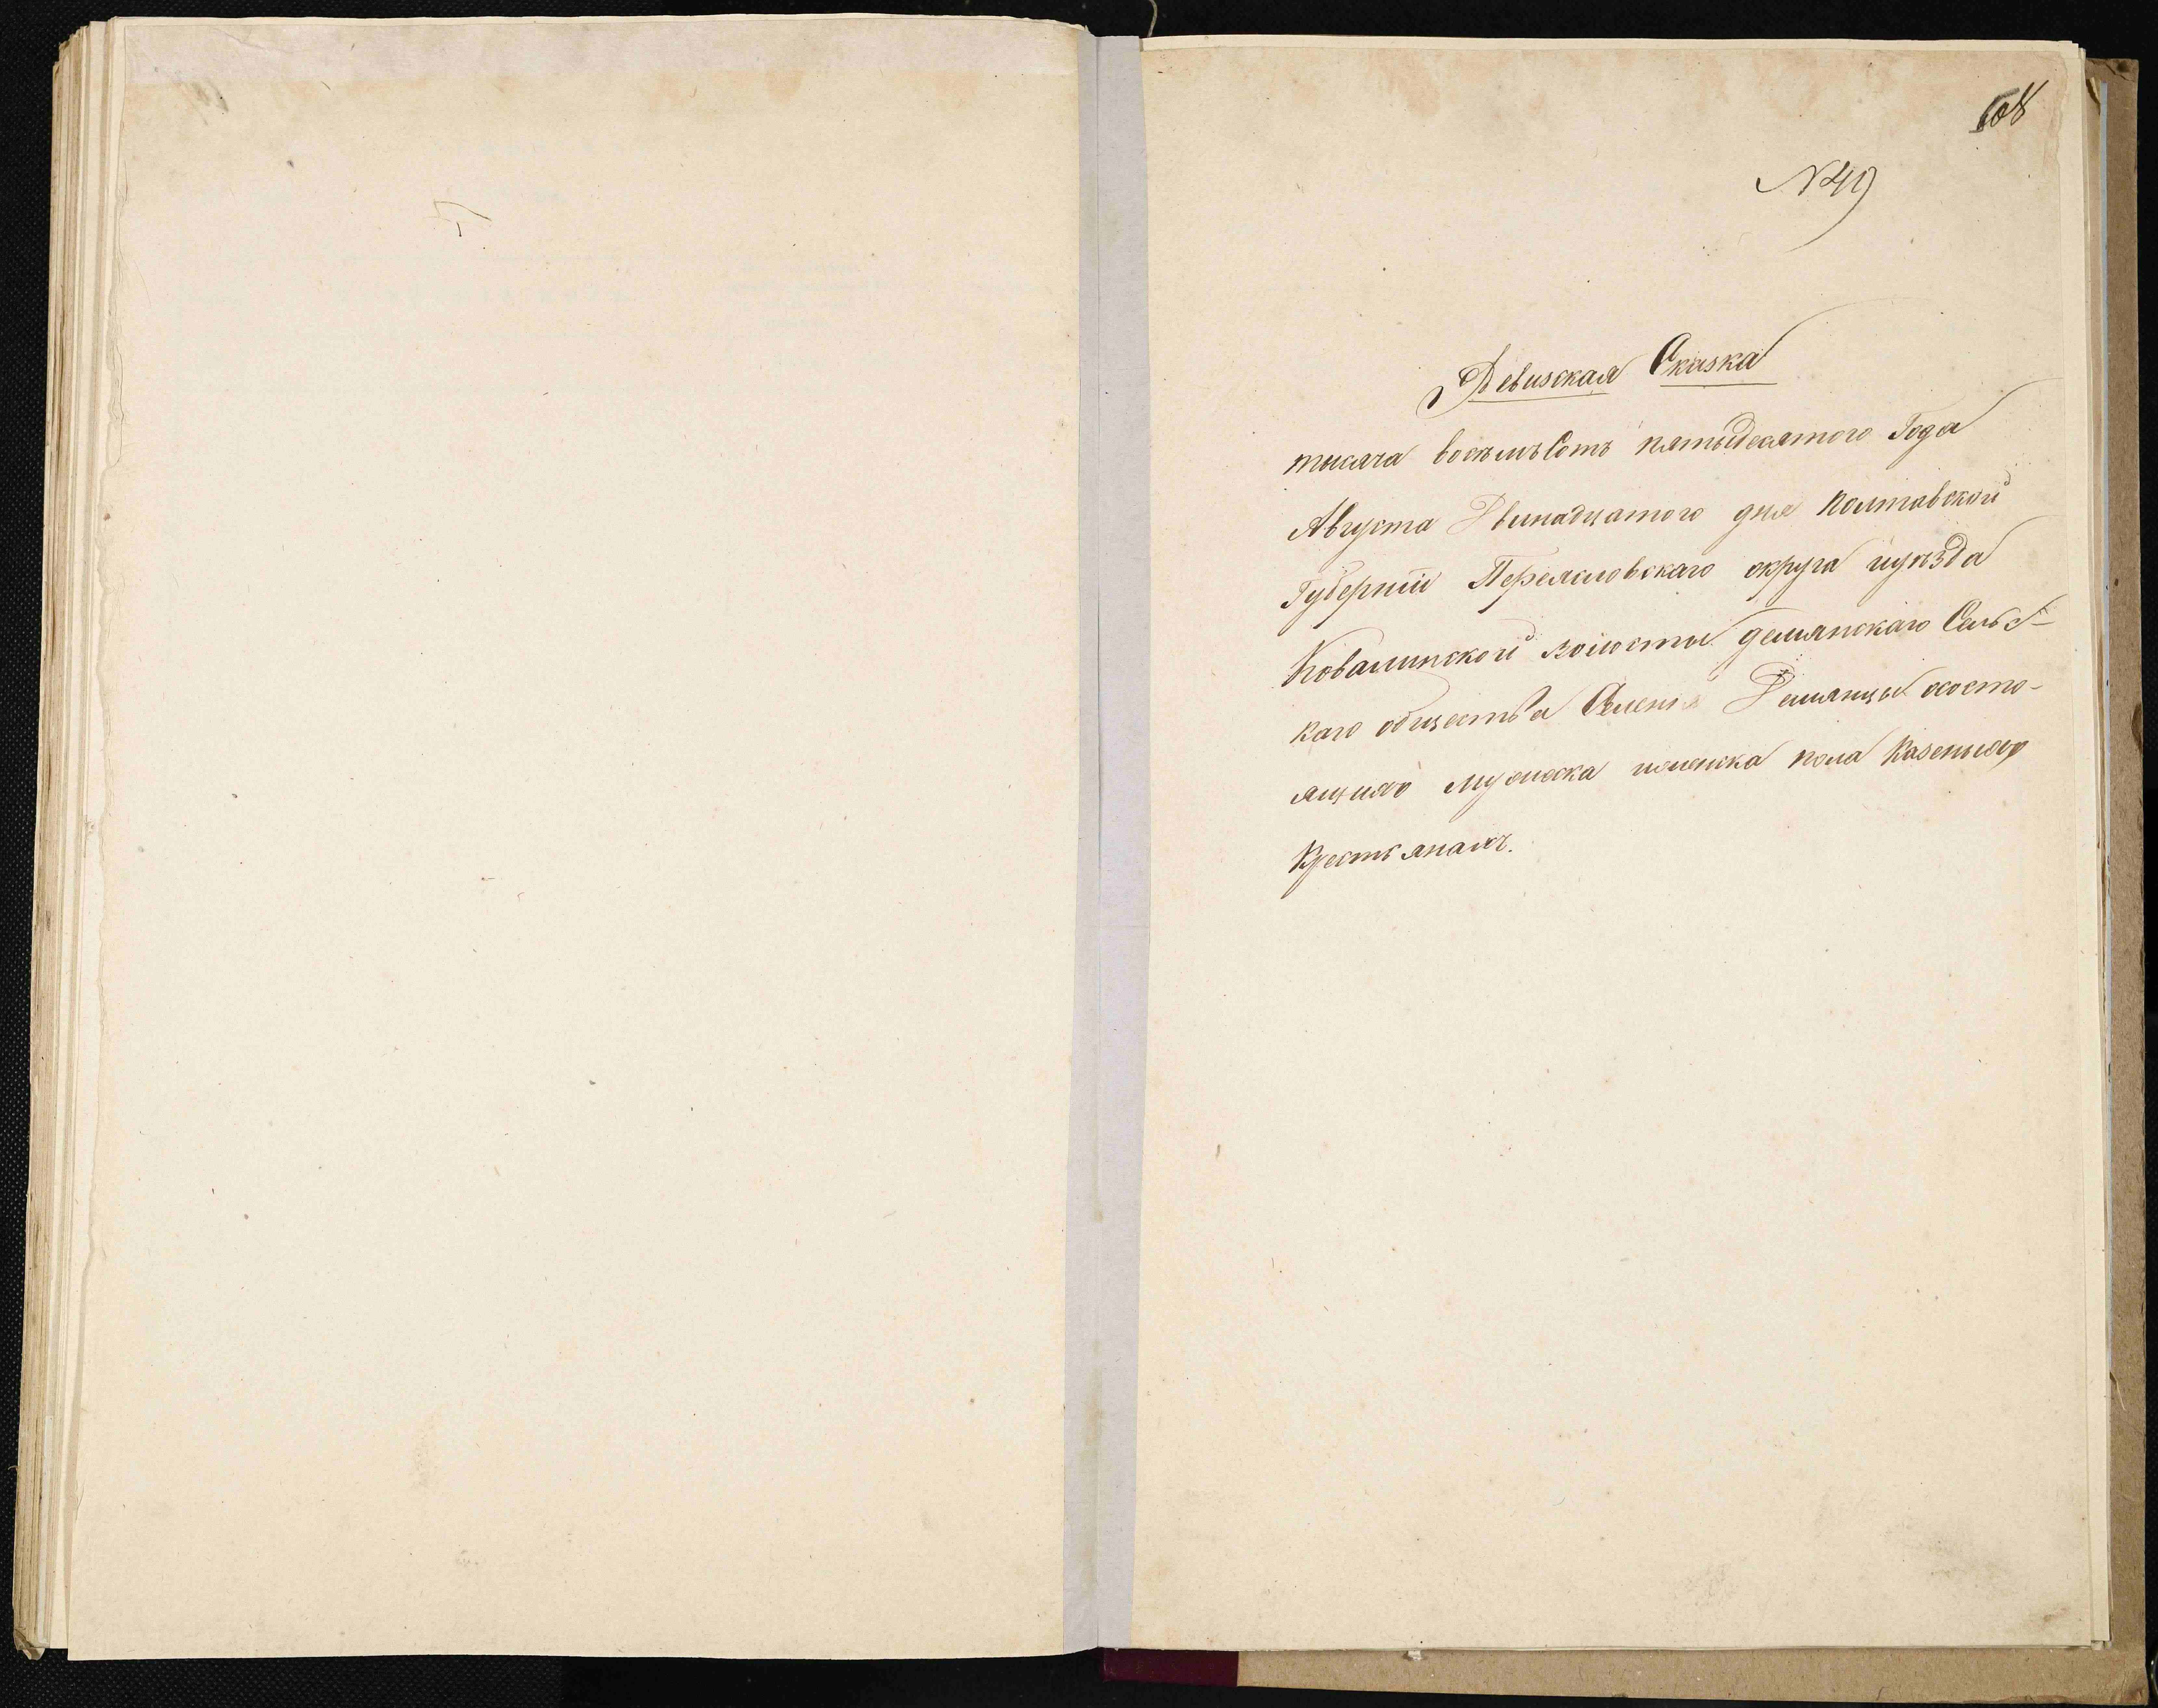 608
N 49
Ревизская Сказка
тысяча восѣмъ Сотъ пятыдесятого Года
Августа Двинадцатого дня Полтавской
Губерніи Переясловскаго округа иуѣзда
Ковалинской волости демянскаго Сельс-
каго общества Селенія Демянцы осостo-
ящихъ мужеска иженска пола Казеныхъ
Крестьянахъ.